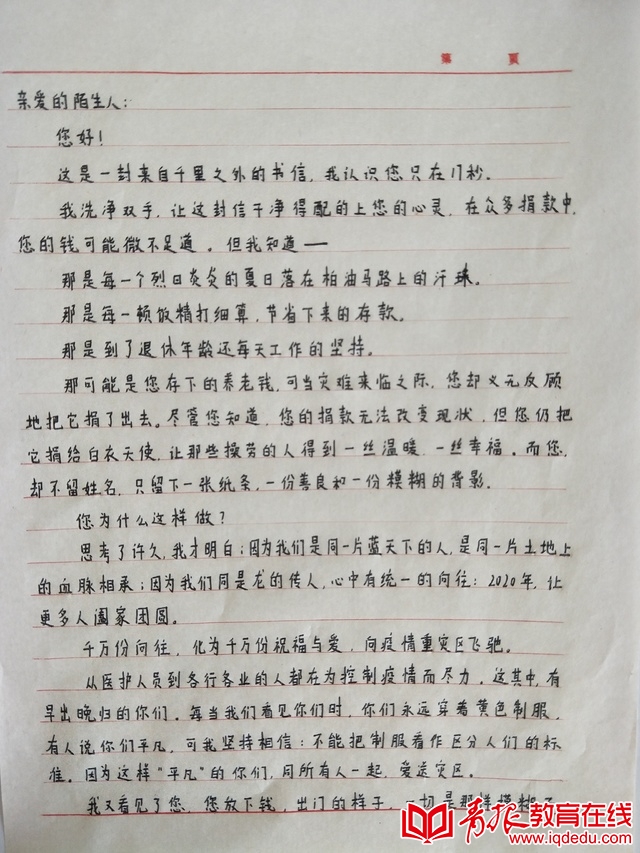 第 頁
亲爱的陌生人:
您好!
这是一封来自千里之外的书信,我认识您只在17秒。
我洗净双手,让这封信干净得配的上您的心灵,在众多捐款中,
您的钱可能微不足道。但我知道——
那是每一个烈日炎炎的夏日落在柏油马路上的汗珠。
那是每一顿饭精打细算,节省下来的存款。
那是到了退休年龄还每天工作的坚持。
那可能是您存下的养老钱,可当灾难来临之际,您却义无反顾
地把它捐了出去。尽管您知道,您的捐款无法改变现状,但您仍把
它捐给白衣天使,让那些操劳的人得到一丝温暖,一丝幸福。而您,
却不留姓名,只留下一张纸条,一份善良和一份模糊的背影。
您为什么这样做?
思考了许久,我才明白:因为我们是同一片蓝天下的人,是同一片土地上
的血脉相承;因为我们同是龙的传人,心中有统一的向往:2020年,让
更多人阖家团圆。
千万份向往,化为千万份祝福与爱,向疫情重灾区飞驰。
从医护人员到各行各业的人都在为控制疫情而尽力。这其中,有
早出晚归的你们。每当我们看见你们时,你们永远穿着黄色制服,
有人说你们平凡,可我坚持相信:不能把制服看作区分人们的标
准。因为这样"平凡"的你们,同所有人一起,爱运灾区。
我又看见了您,您放下钱,出门的样子,一切是那样模糊了
青报教育在线
www.iqdedu.com